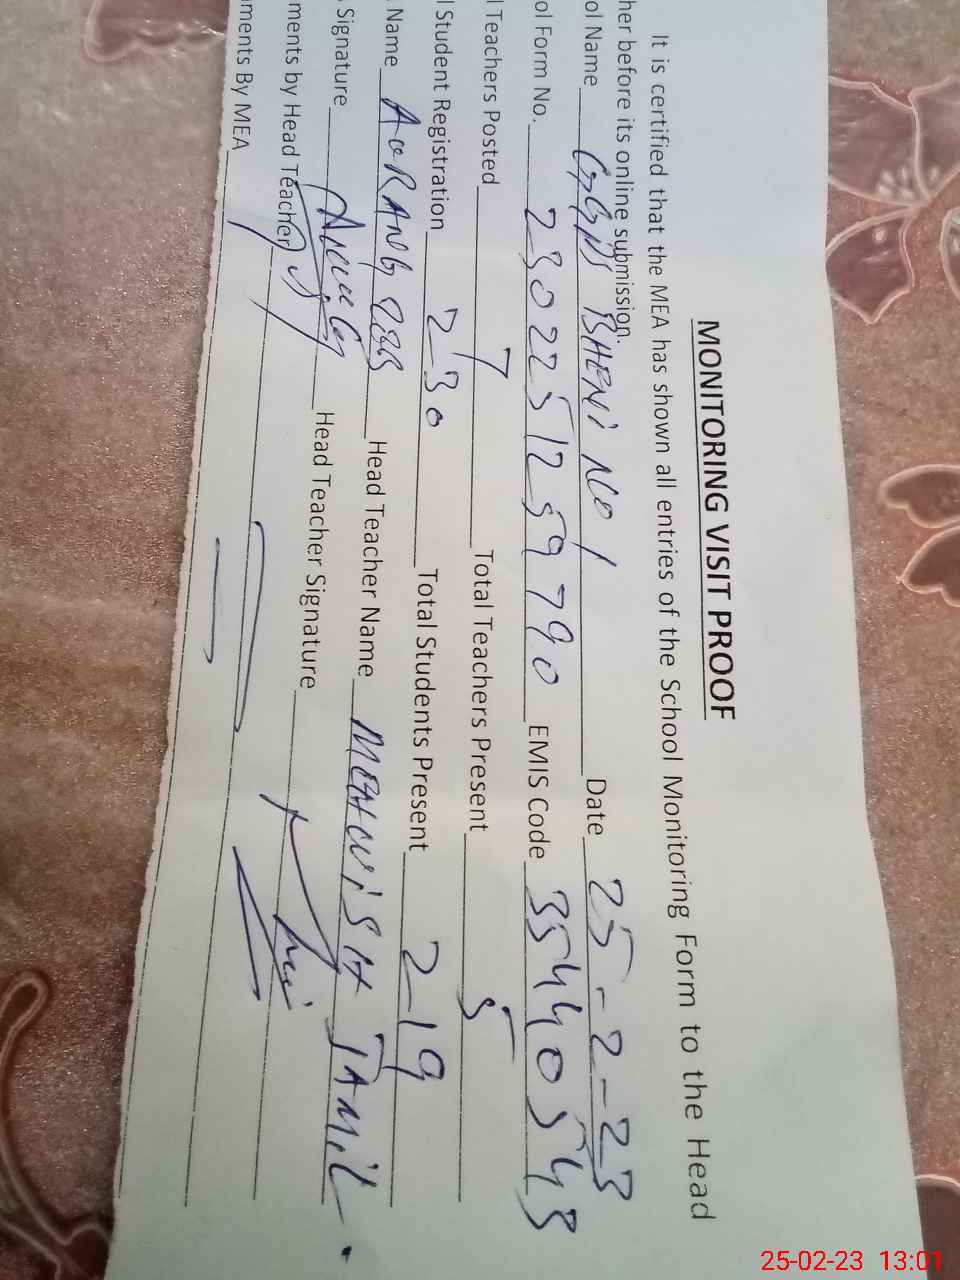 MONITORING VISIT PROOF
It is certified that the MEA has shown all entries of the School Monitoring Form to the Head
her before its online submission.
ol Name GGPS BHENI NO 1 Date 25-2-23
ol Form No. 2302251259790 EMIS Code 35440543
l Teachers Posted 7 Total Teachers Present 5
l Student Registration 230 Total Students Present 219
Name AURANG ZEB Head Teacher Name MEHWISH JAMIL
Signature Head Teacher Signature
ments by Head Teacher
ments By MEA
25-02-23 13:01